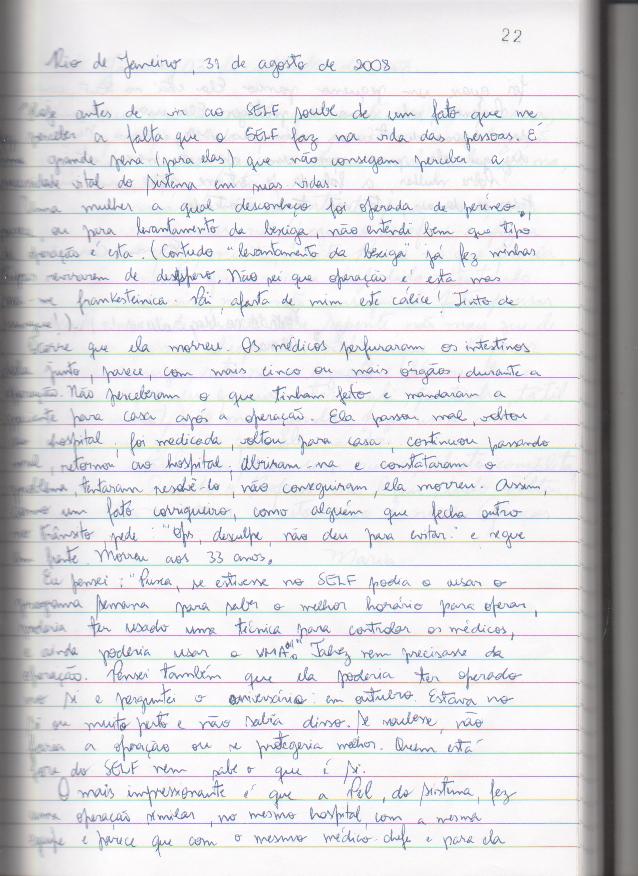 22
Rio de Janeiro, 31 de agosto de 2008
Hoje antes de vir ao SELF soube de um fato que me
perceber a falta que o SELF faz na vida das pessoas. É
uma grande pena (para elas) que não consegam perceber a
necessidade vital do sistema em suas vidas.
Uma mulher a qual desconheço foi operada de períneo,
ou para levantamento da bexiga, não entendi bem que tipo
de operação é esta. (Contudo "levantamento da bexiga" já fez minhas
revirarem de desespero. Não sei que operação é esta mas
frankesteinica. Pai, afasta de mim este cálice! Tinto de
sangue!).
Ocorre que ela morreu. Os médicos perfuraram os intestinos
dela junto, parece, com mais cinco ou mais órgãos, durante a
operação. Não perceberam o que tinham feito e mandaram a
paciente para casa após a operação. Ela passou mal, voltou
ao hospital, foi medicada, voltou para casa, continuou passando
mal, retornou ao hospital; Abriram-na e constataram o
problema, tentaram resolvê-lo, não conseguiram, ela morreu. Assim,
como um fato corriqueiro, como alguém que fecha outro
no trânsito, pede: "Ops, desculpe, não deu para evitar." e segue
em frente. Morreu aos 33 anos.
Eu pensei: "Puxa, se estivesse no SELF podia o usar o
programa semana para saber o melhor horário para operar,
poderia ter usado uma técnica para controlar os médicos,
e ainda poderia usar o VMA Talvez nem precisasse da
operação. Pensei também que ela poderia ter operado
no si e perguntei o aniversário: em outubro. Estava no
si ou muito perto e não sabia disso. Se soubesse, não
faria a operação ou se protegeria melhor. Quem está
fora do SELF nem sabe o que é si.
O mais impressionante é que a Pel, do sistema, fez
uma operação similar, no mesmo hospital, com a mesma
equipe e parece que com o mesmo médico-chefe e para ela